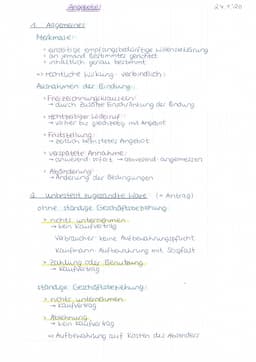 Angebote
24.1.20
1. Allgemeines
Merkmale:
• einseitige empfangsbedürftige Willenserklärung
• an jemand Bestimmtes gerichtet
• inhaltlich genau bestimmt
=> rechtliche Wirkung: verbindlich!
Ausnahmen der Bindung:
• Freizeichnungsklauseln:
→ durch Zusätze Einschränkung der Bindung
• rechtzeitiger Widerruf:
→ vorher bis gleichzeitig mit Angebot
• Fristsetzung:
→ zeitlich befristetes Angebot
• verspätete Annahme:
→ anwesend: sofort → abwesend: angemessen
• Abänderung:
→ Änderung der Bedingungen
2. unbestellt zugesandte Ware (= Antrag)
ohne ständige Geschäftsbeziehung:
• nichts unternehmen
→ kein Kaufvertrag
Verbraucher: keine Aufbewahrungspflicht
Kaufmann: Aufbewahrung mit Sorgfalt
• Zahlung oder Benutzung
→ Kaufvertrag
ständige Geschäftsbeziehung:
• nichts unternehmen
→ Kaufvertrag
• Ablehnung
→ kein Kaufvertrag
=> Aufbewahrung auf Kosten des Absenders